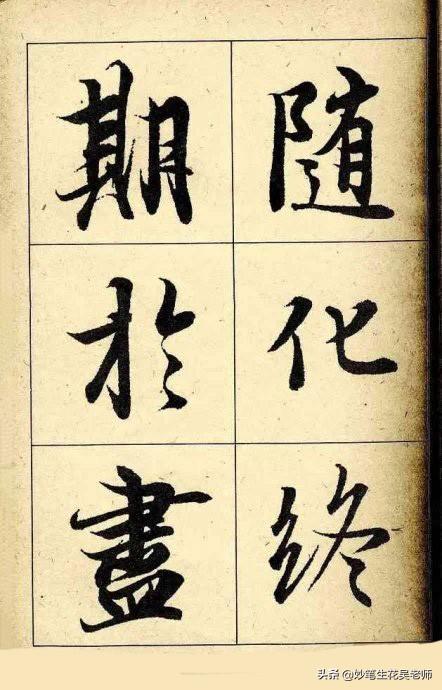 随化终
期於盡
头条 @妙笔生花吴老师